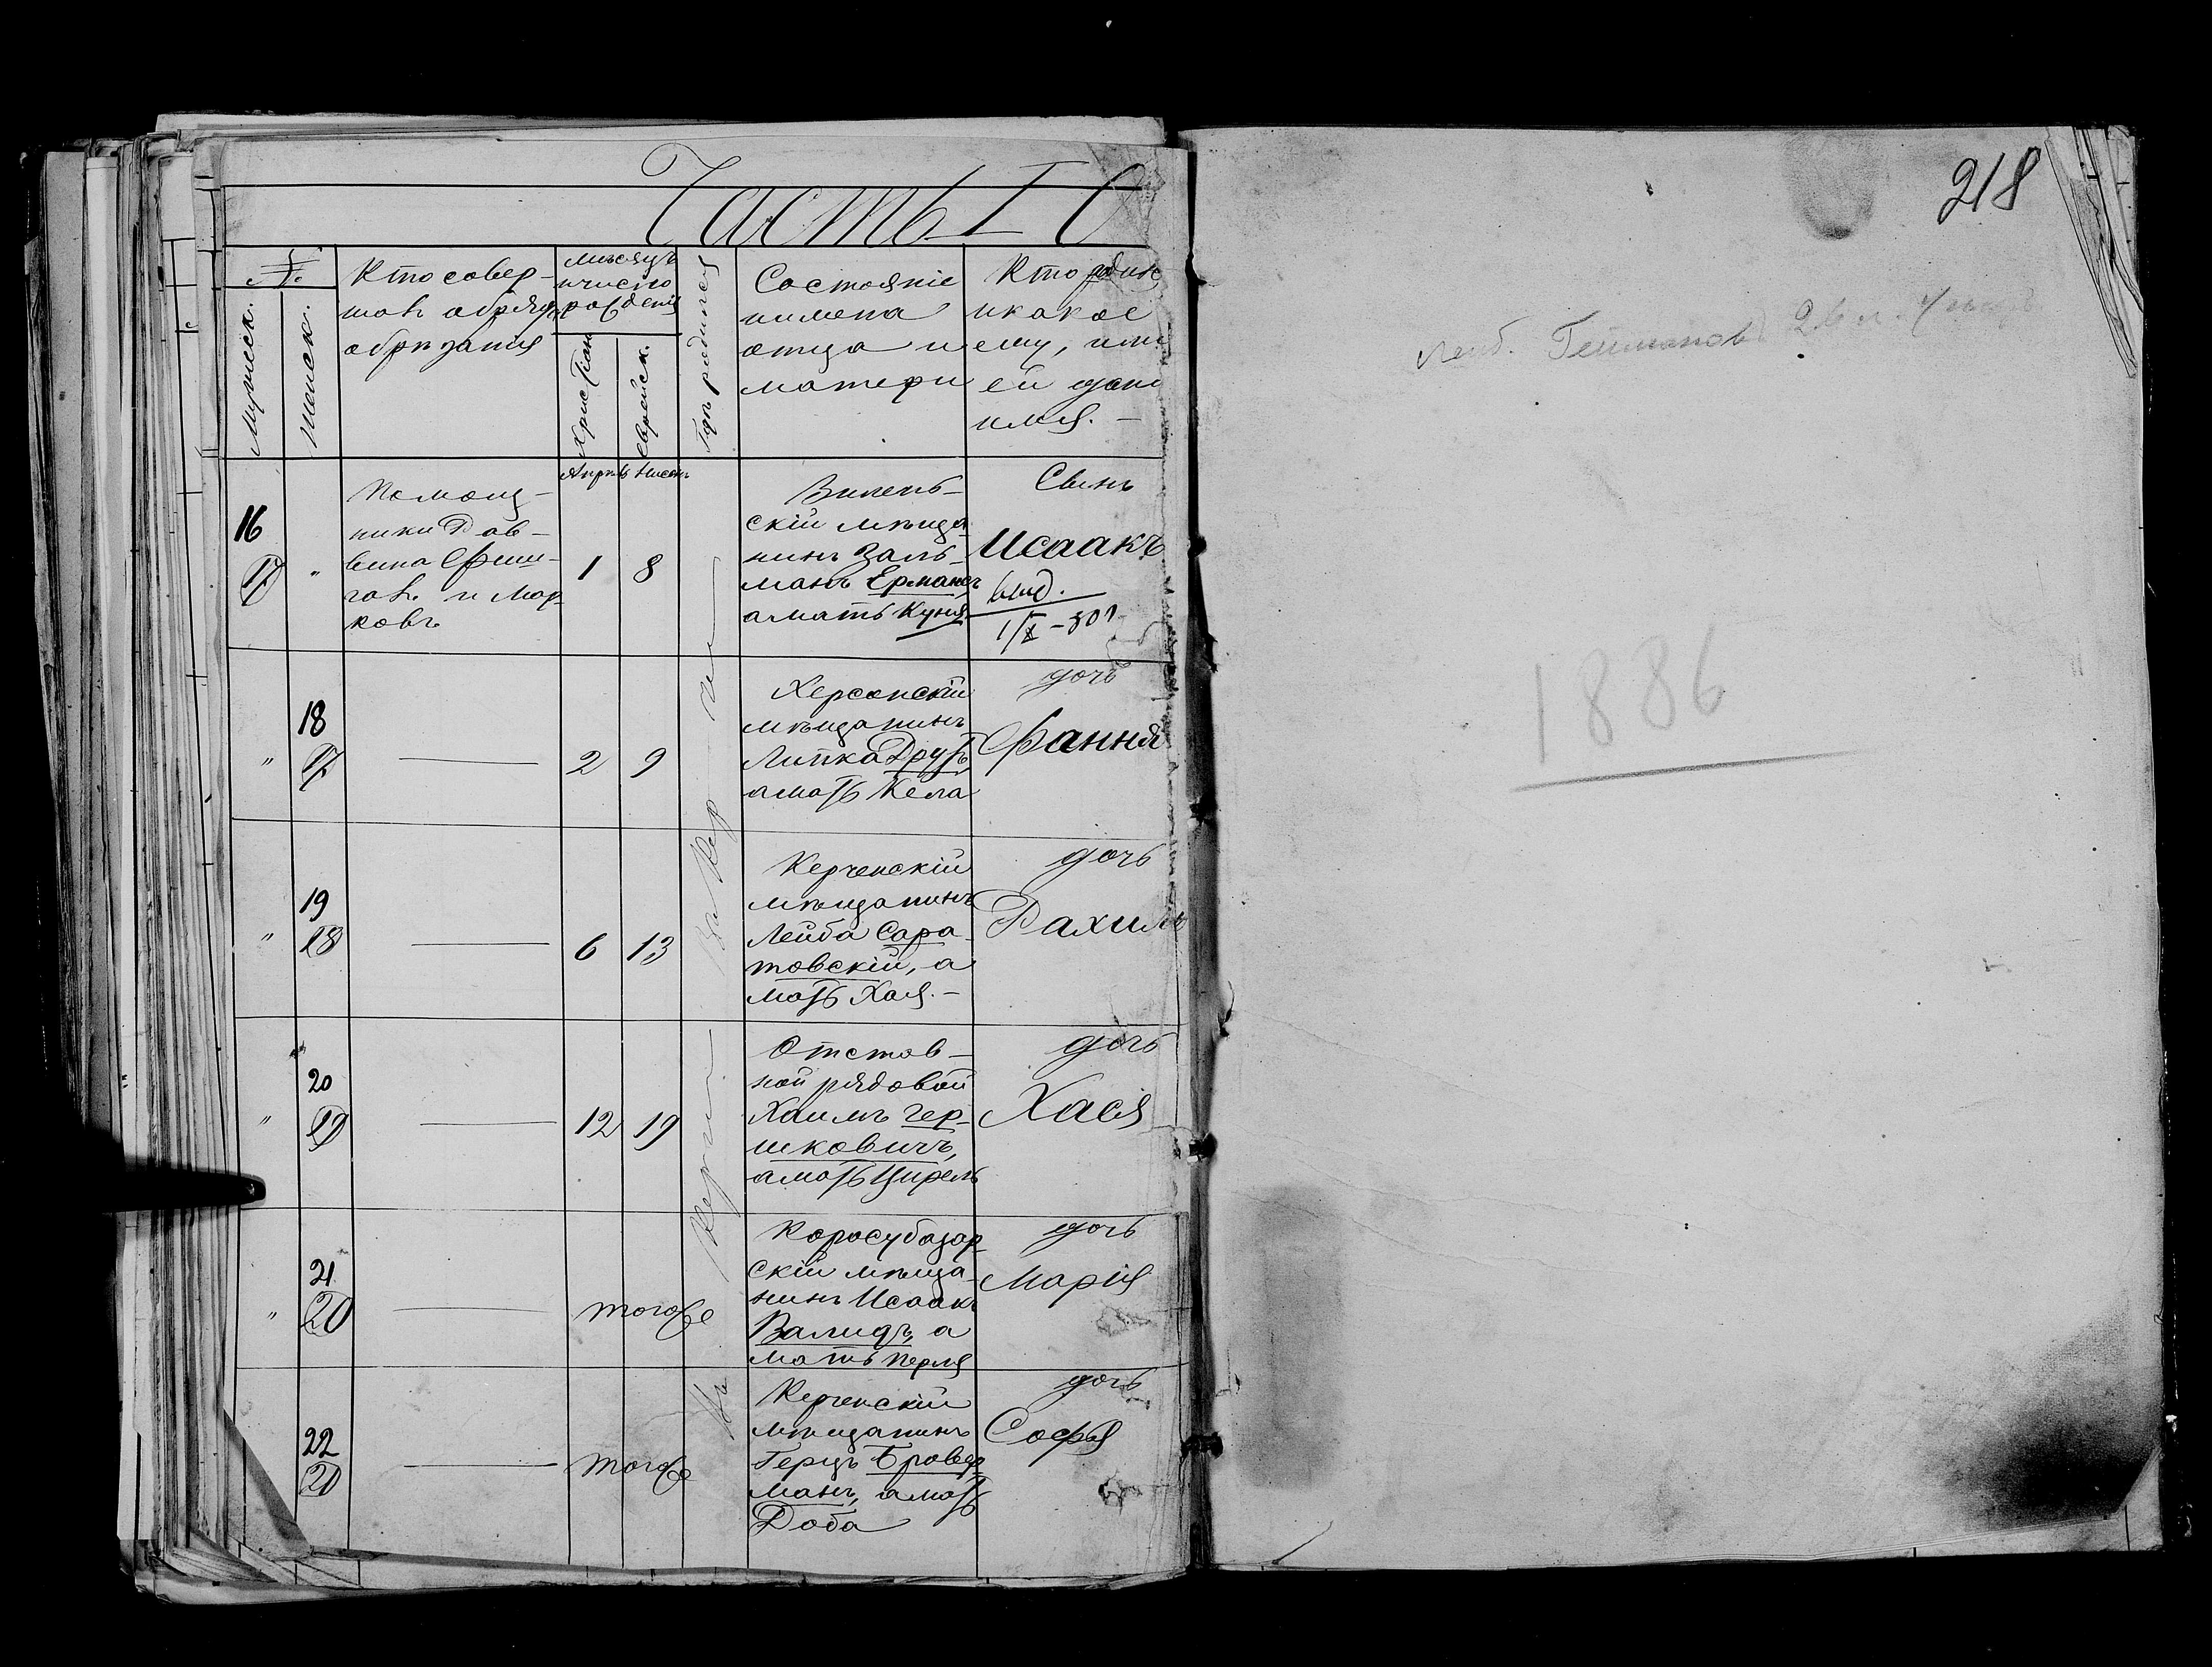 Часть I О
№
Мужеск.
Женск.
Кто совер-
шалъ обрядъ
обрѣзанія
Мѣсяцъ
и число
рожденія
Христіан
Еврейск.
Гдѣ родился
Состояніе
и имена
отца и
матери
Кто родил
и какое
ему, или
ей дано
имя. —
Апрѣль Нисонъ
16
17
"
Помощ-
ники
и Мар-
ковъ
1
8
Вилен-
скій мѣща-
нинъ Заль-
манъ Ерманъ
а мать Куня
Сынъ
Исаакъ
выд.
"
18
17
2
9
Херсонскій
мѣщанинъ
Липка Друзъ,
а мать Кела
дочь
Фання
"
19
18
6
13
Керченскій
мѣщанинъ
Лейба Сара-
товскій, а
мать Хая. —
дочь
Рахиль
"
20
19
12
19
Отстав-
ной рядовой
Хаимъ Гер-
шковичъ,
а мать Цирель
дочь
Хася
"
21
20
тогоже
Карасубазар
скій мѣща-
нинъ Исаакъ
Валидъ, а
мать Перля
дочь
Марія
22
21
тогоже
Керченскій
мѣщанинъ
Герцъ Бровер-
манъ, а мать
Доба
дочь
Софья
Въ Керчи
218
Лейб. Гейманов
1886